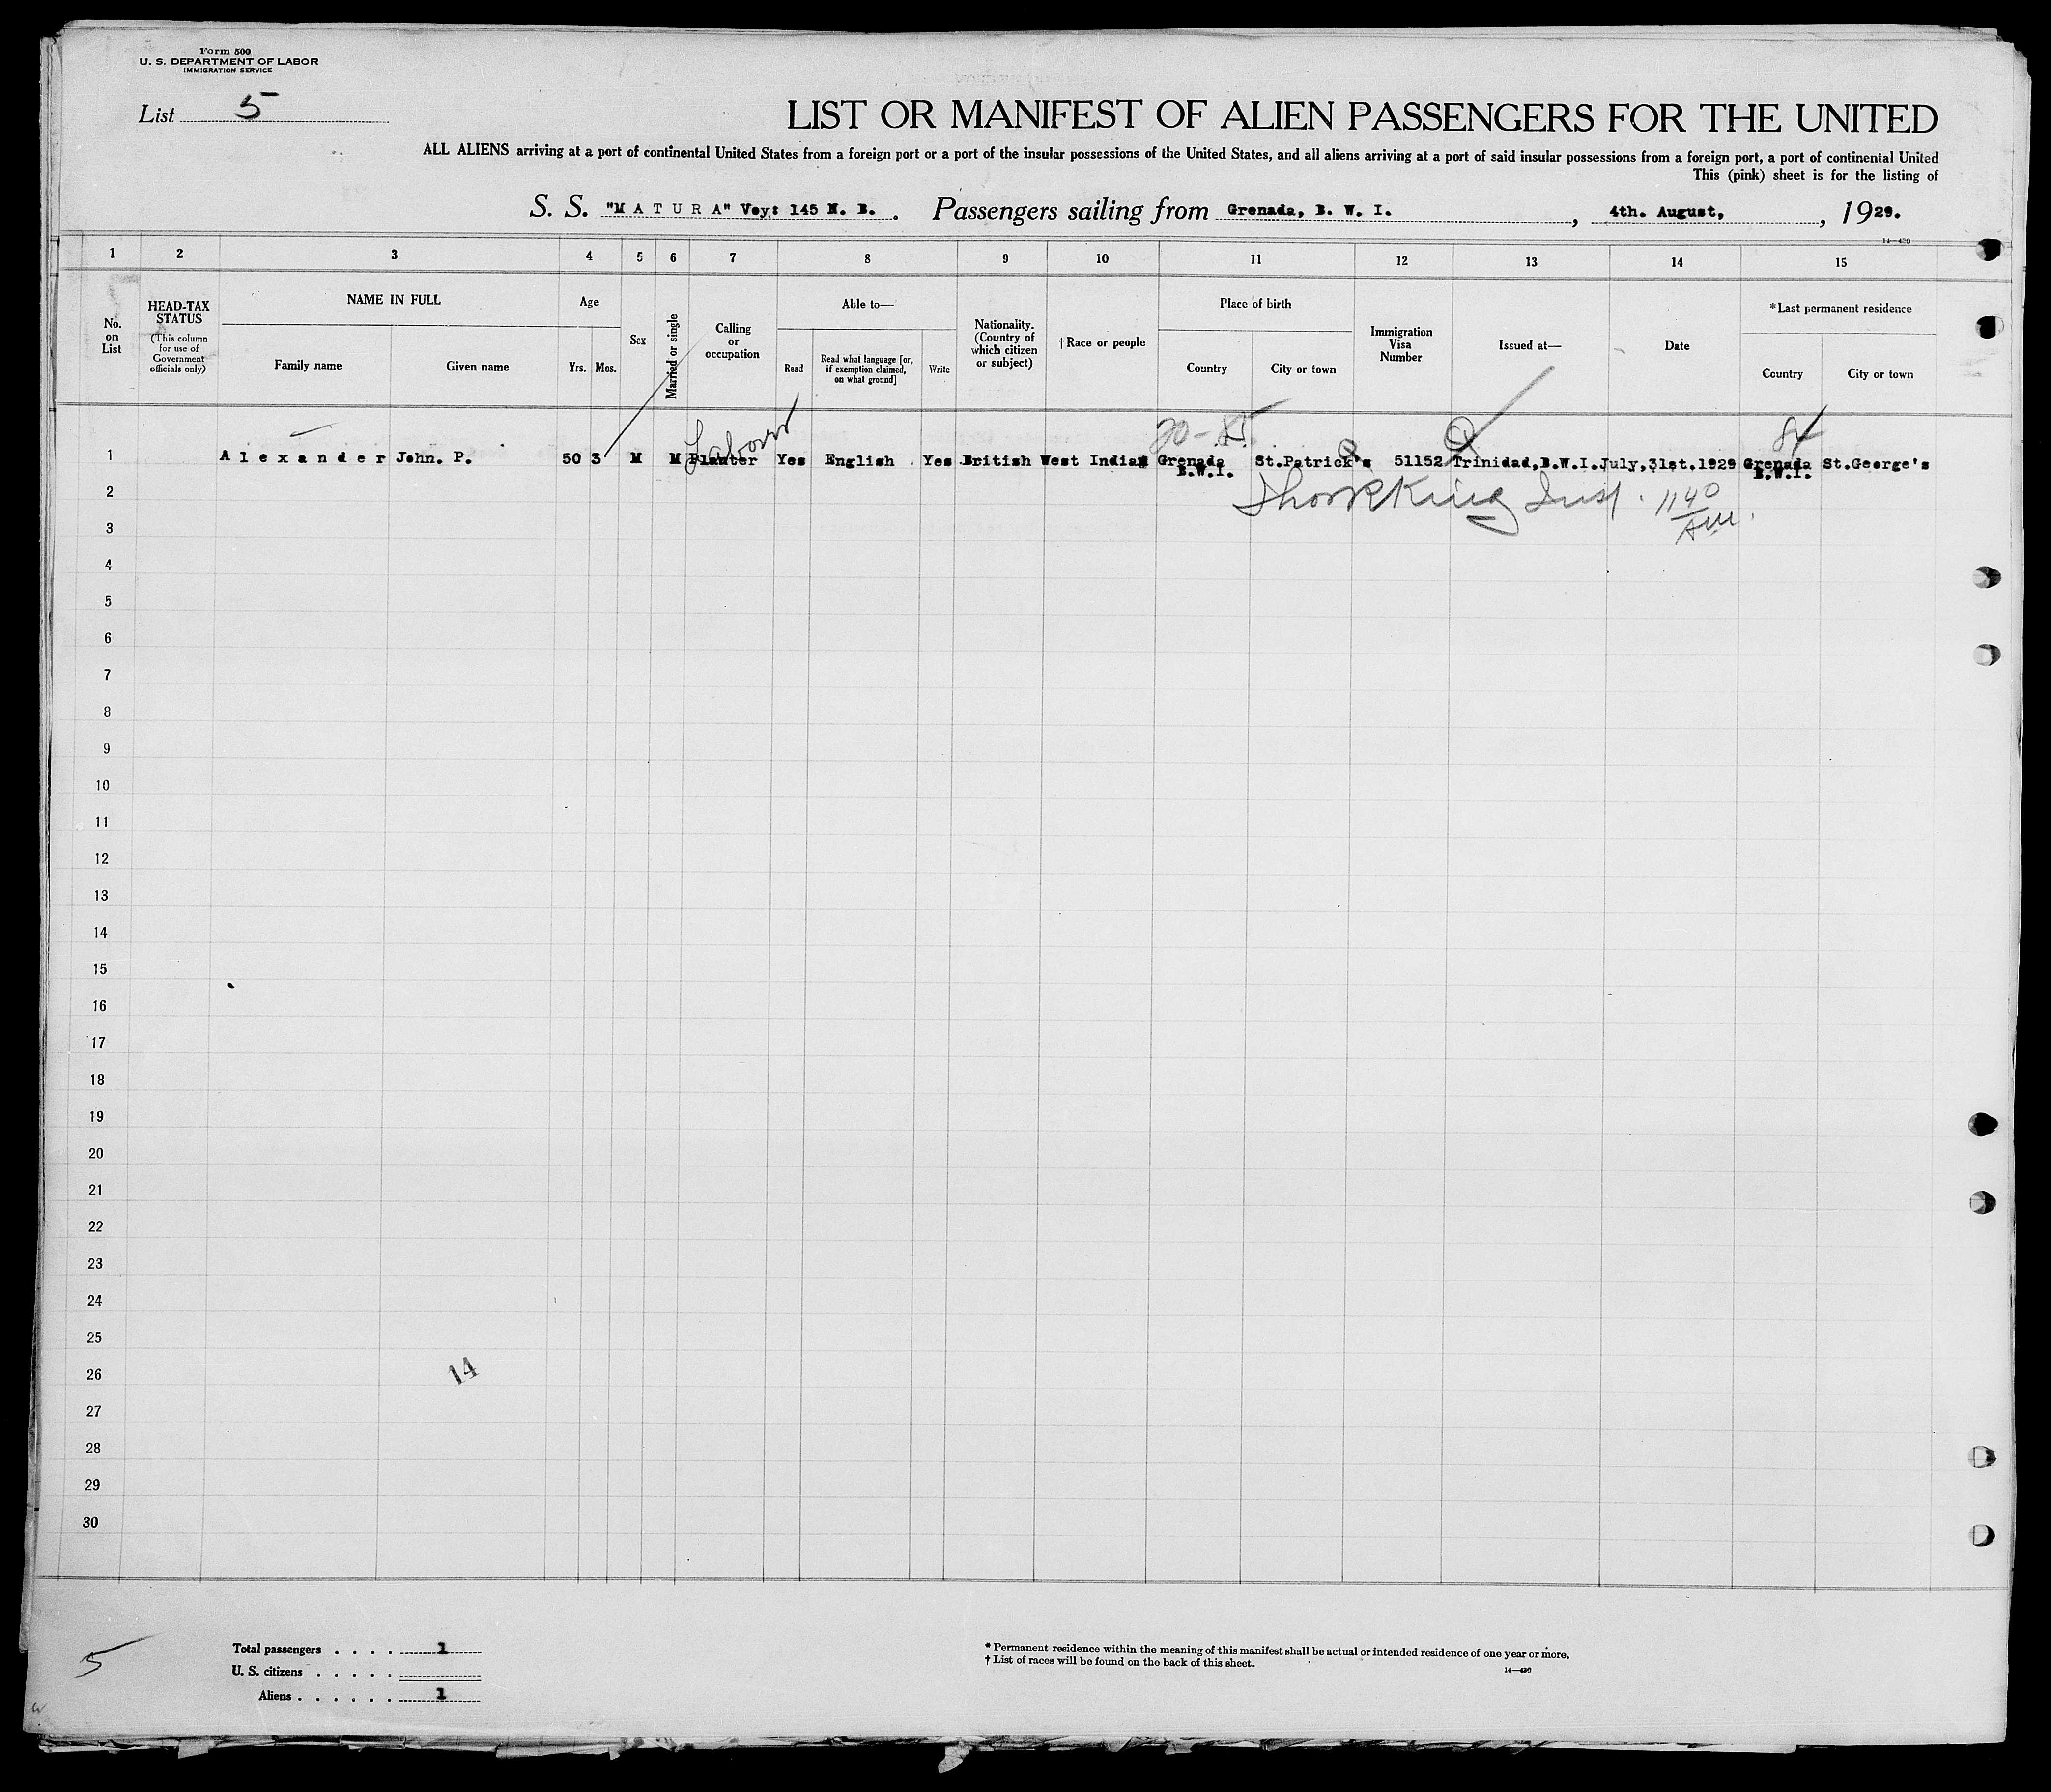 Form 500
U. S. DEPARTMENT OF LABOR
IMMIGRATION SERVICE
List 5
LIST OR MANIFEST OF ALIEN PASSENGERS FOR THE UNITED
ALL ALIENS arriving at a port of continental United States from a foreign port or a port of the insular possessions of the United States, and all aliens arriving at a port of said insular possessions from a foreign port, a port of continental United
This (pink) sheet is for the listing of
S. S. "M A T U R A" Voy: 145 N. B. . Passengers sailing from Grenada, B. W. I. , 4th. August, , 1929.
14—430
1 2 3 4 5 6 7 8 9 10 11 12 13 14 15
No. on List
HEAD-TAX STATUS
(This column for use of Government officials only)
NAME IN FULL
Family name
Given name
Age
Yrs.
Mos.
Sex
Married or single
Calling or occupation
Able to—
Read
Read what language [or, if exemption claimed, on what ground]
Write
Nationality. (Country of which citizen or subject)
†Race or people
Place of birth
Country
City or town
Immigration Visa Number
Issued at—
Date
*Last permanent residence
Country
City or town
20-85
84
Labour
1 A l e x a n d e r John. P. 50 3 M M Planter Yes English Yes British West Indian Grenada B.W.I. St.Patrick's 51152 Trinidad,B.W.I. July,31st.1929 Grenada B.W.I. St.George's
King Insp. 1140 AM.
2
3
4
5
6
7
8
9
10
11
12
13
14
15
16
17
18
19
20
21
22
23
24
25
26
14
27
28
29
30
Total passengers . . . . 1
U. S. citizens . . . . .
Aliens . . . . . . 1
5
* Permanent residence within the meaning of this manifest shall be actual or intended residence of one year or more.
† List of races will be found on the back of this sheet.
14—430